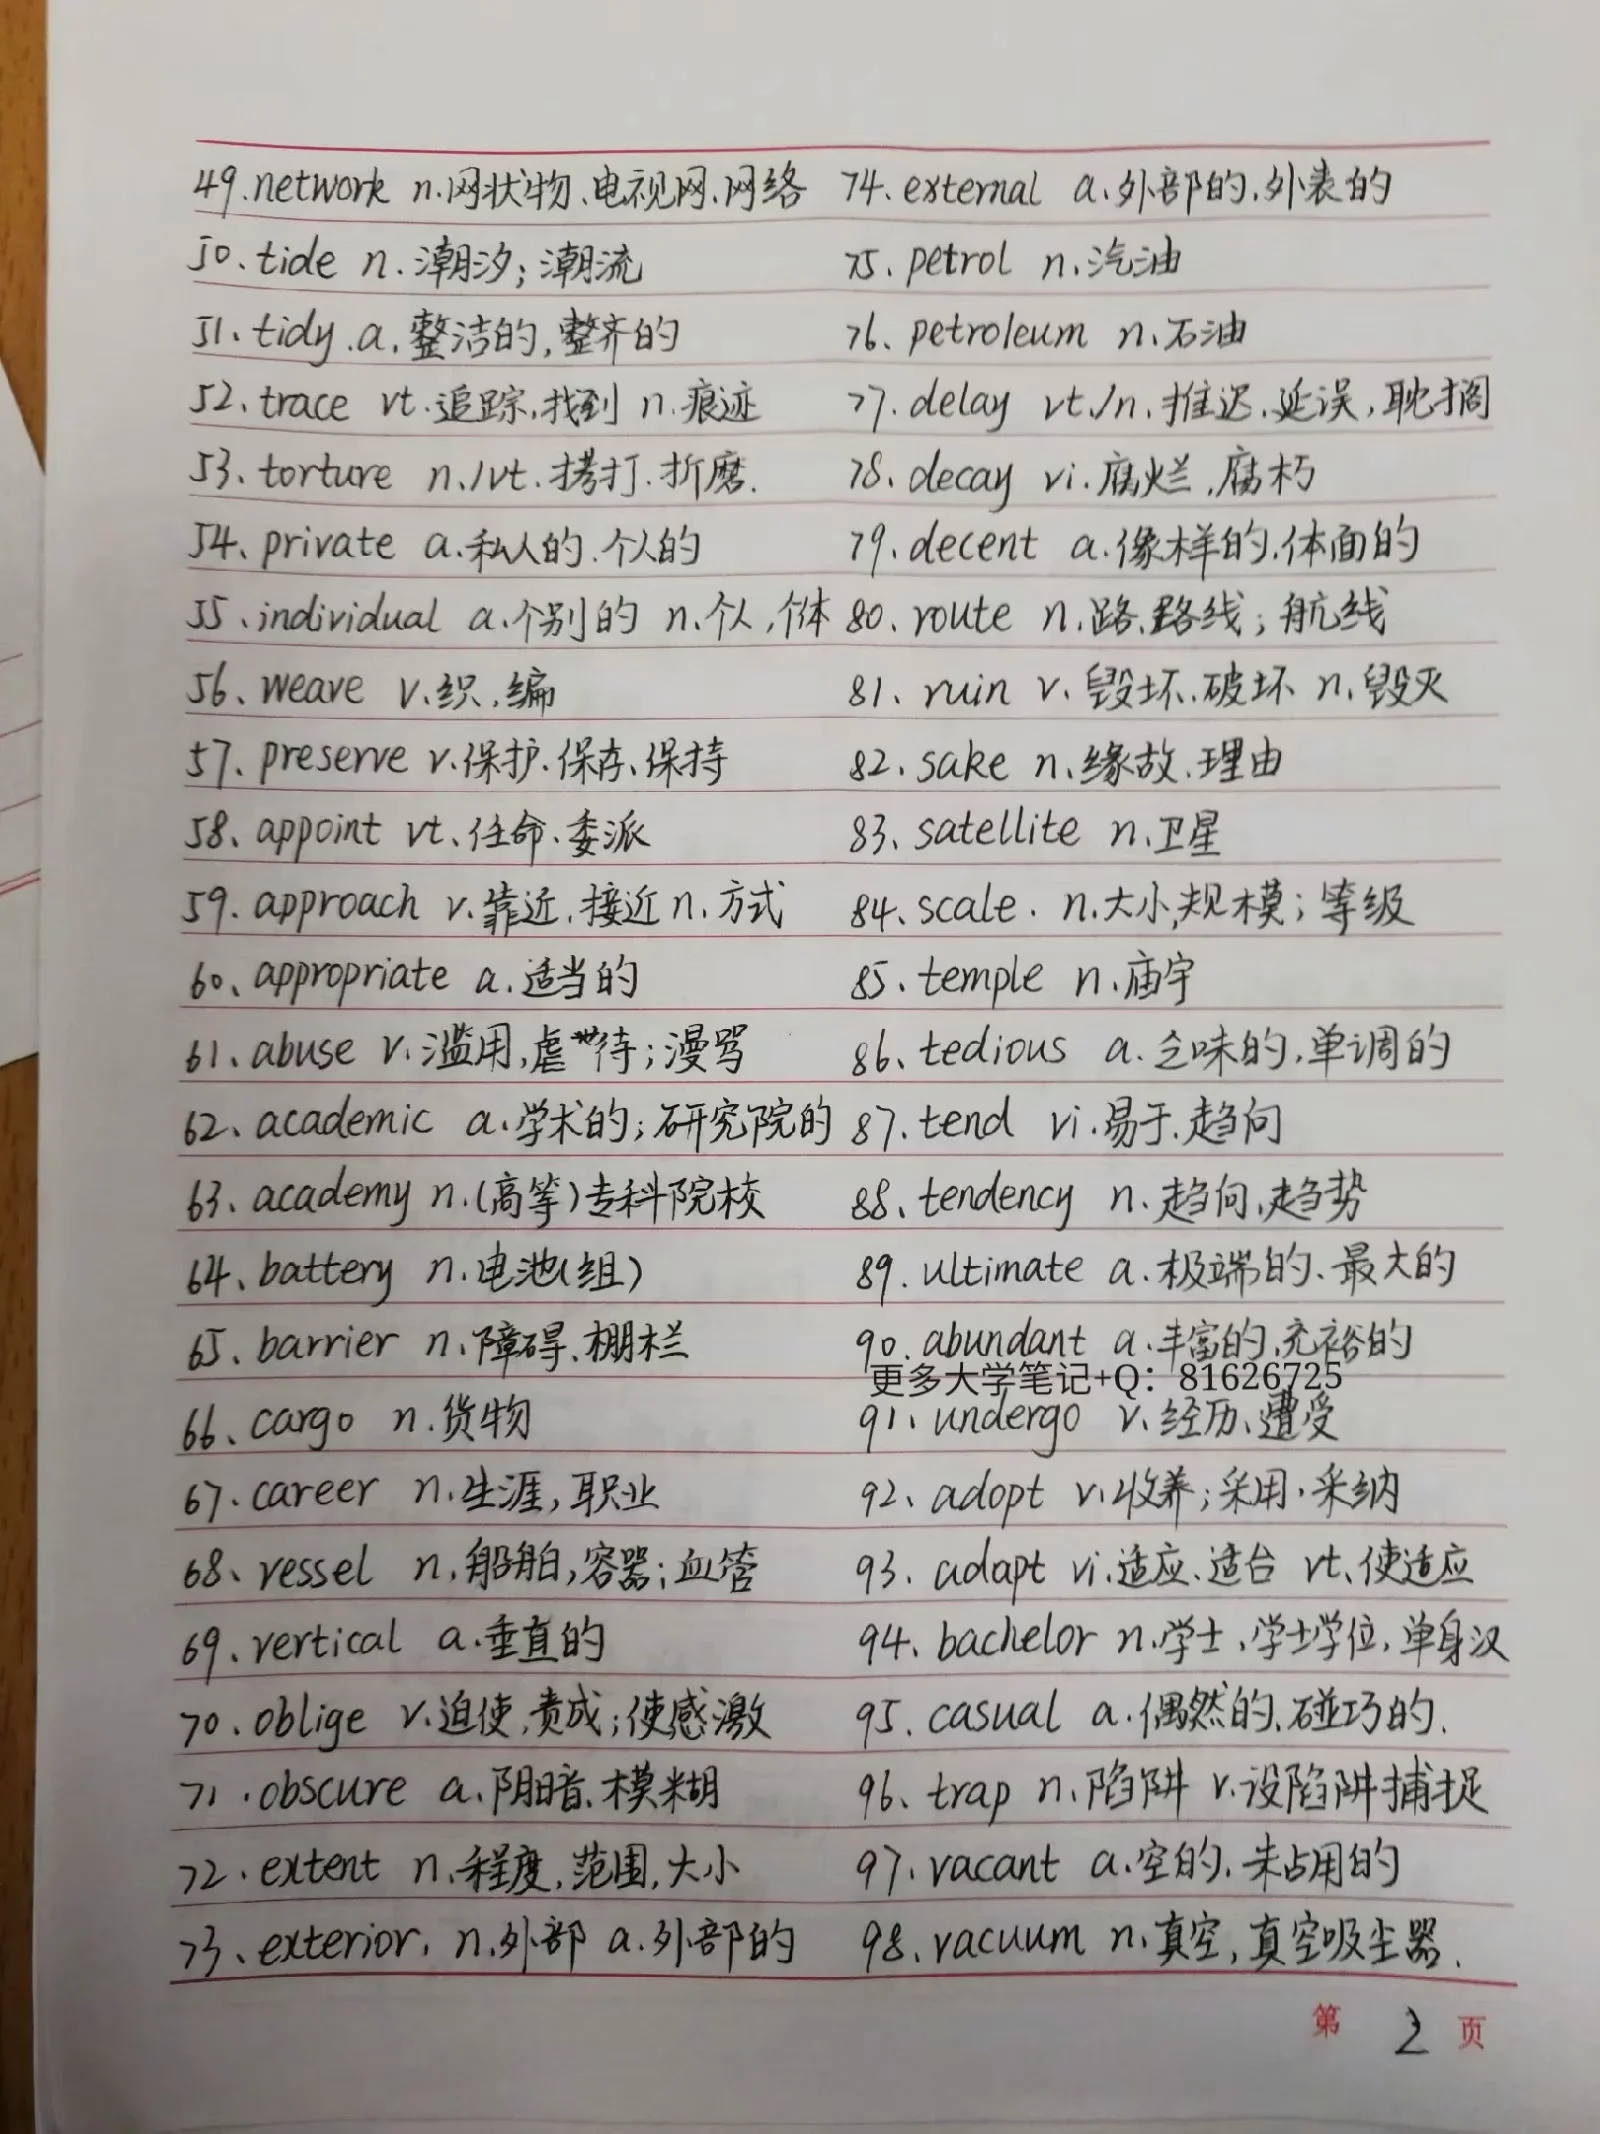 49.network n.网状物、电视网、网络
50、tide n.潮汐;潮流
51、tidy.a.整洁的,整齐的
52、trace vt.追踪,找到 n.痕迹
53、torture n./vt.拷打、折磨.
54、private a.私人的、个人的
55、individual a.个别的 n.个人,个体
56、weave v.织,编
57、preserve v.保护、保存、保持
58、appoint vt、任命、委派
59.approach v.靠近,接近 n.方式
60、appropriate a.适当的
61、abuse v.滥用,虐待;漫骂
62、academic a.学术的;研究院的
63、academy n.(高等)专科院校
64、battery n.电池(组)
65、barrier n.障碍、栅栏
66、cargo n.货物
67.career n.生涯,职业
68、vessel n.船舶,容器;血管
69、vertical a.垂直的
70.oblige v.迫使,责成;使感激
71.obscure a.阴暗、模糊
72.extent n.程度,范围,大小
73、exterior, n.外部 a.外部的
74.external a.外部的,外表的
75.petrol n.汽油
76.petroleum n.石油
77.delay vt./n.推迟、延误,耽搁
78、decay vi.腐烂,腐朽
79.decent a.像样的、体面的
80.route n.路、路线;航线
81、ruin v.毁坏、破坏 n.毁灭
82、sake n.缘故、理由
83、satellite n.卫星
84、scale. n.大小,规模;等级
85、temple n.庙宇
86、tedious a.乏味的,单调的
87.tend vi.易于、趋向
88、tendency n.趋向,趋势
89.ultimate a.极端的、最大的
90.abundant a.丰富的,充裕的
更多大学笔记+Q：81626725
91、undergo v.经历、遭受
92、adopt v.收养;采用,采纳
93.adapt vi.适应、适合 vt、使适应
94.bachelor n.学士、学士学位,单身汉
95.casual a.偶然的、碰巧的.
96、trap n.陷阱 v.设陷阱捕捉
97、vacant a.空的、未占用的
98、vacuum n.真空,真空吸尘器.
第 2 页